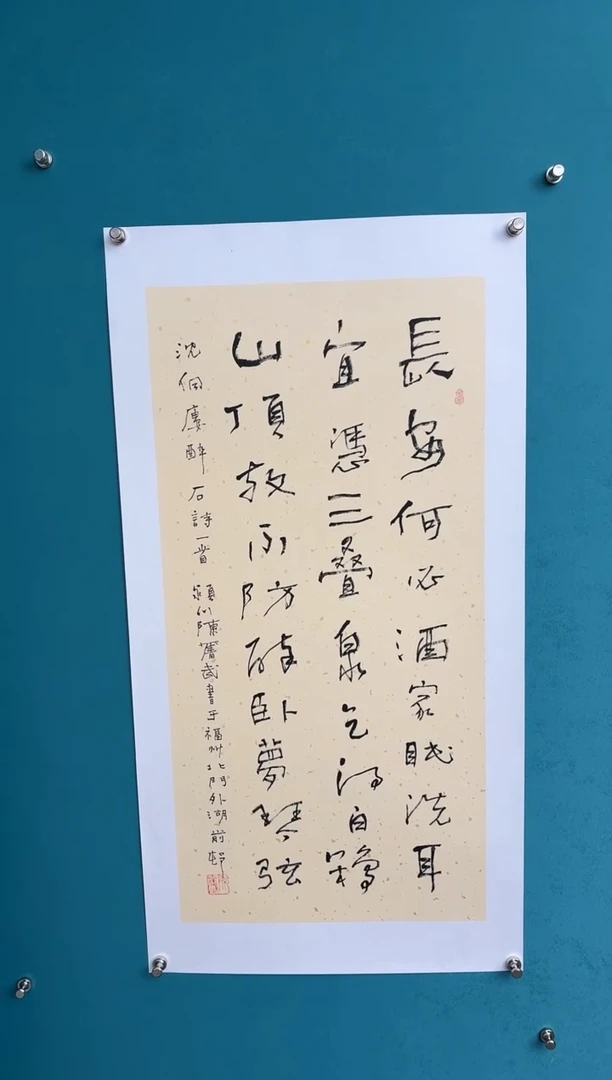 長安何必酒家眠洗耳
宜憑三疊泉乞得白鶴
山頂放不防醉臥夢琴弦
沈佝廔醉石詩一首 潁川陳賡武書于福州北門外湖前邨